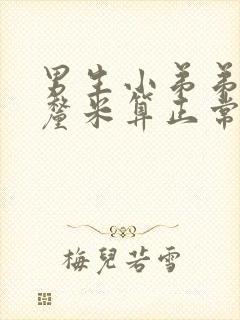 男生小弟弟
釐米算正常
梅兒若雪